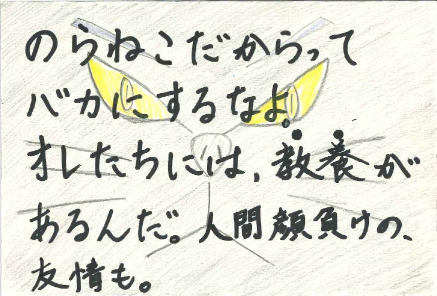 のらねこだからって
バカにするなよ。
オレたちには、教養が
あるんだ。人間顔負けの、
友情も。